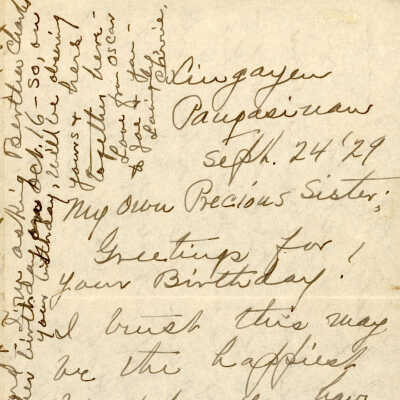 Lingayen
Pangasinan
Sept. 24 '29
My Own Precious Sister;
Greetings for
your Birthday!
I trust this may
be the happiest
asking Berther
birthday on Oct. 16 - so, on
your birthday, will be
yours & hers
together here -
Love from Oscar
& Joe & you -